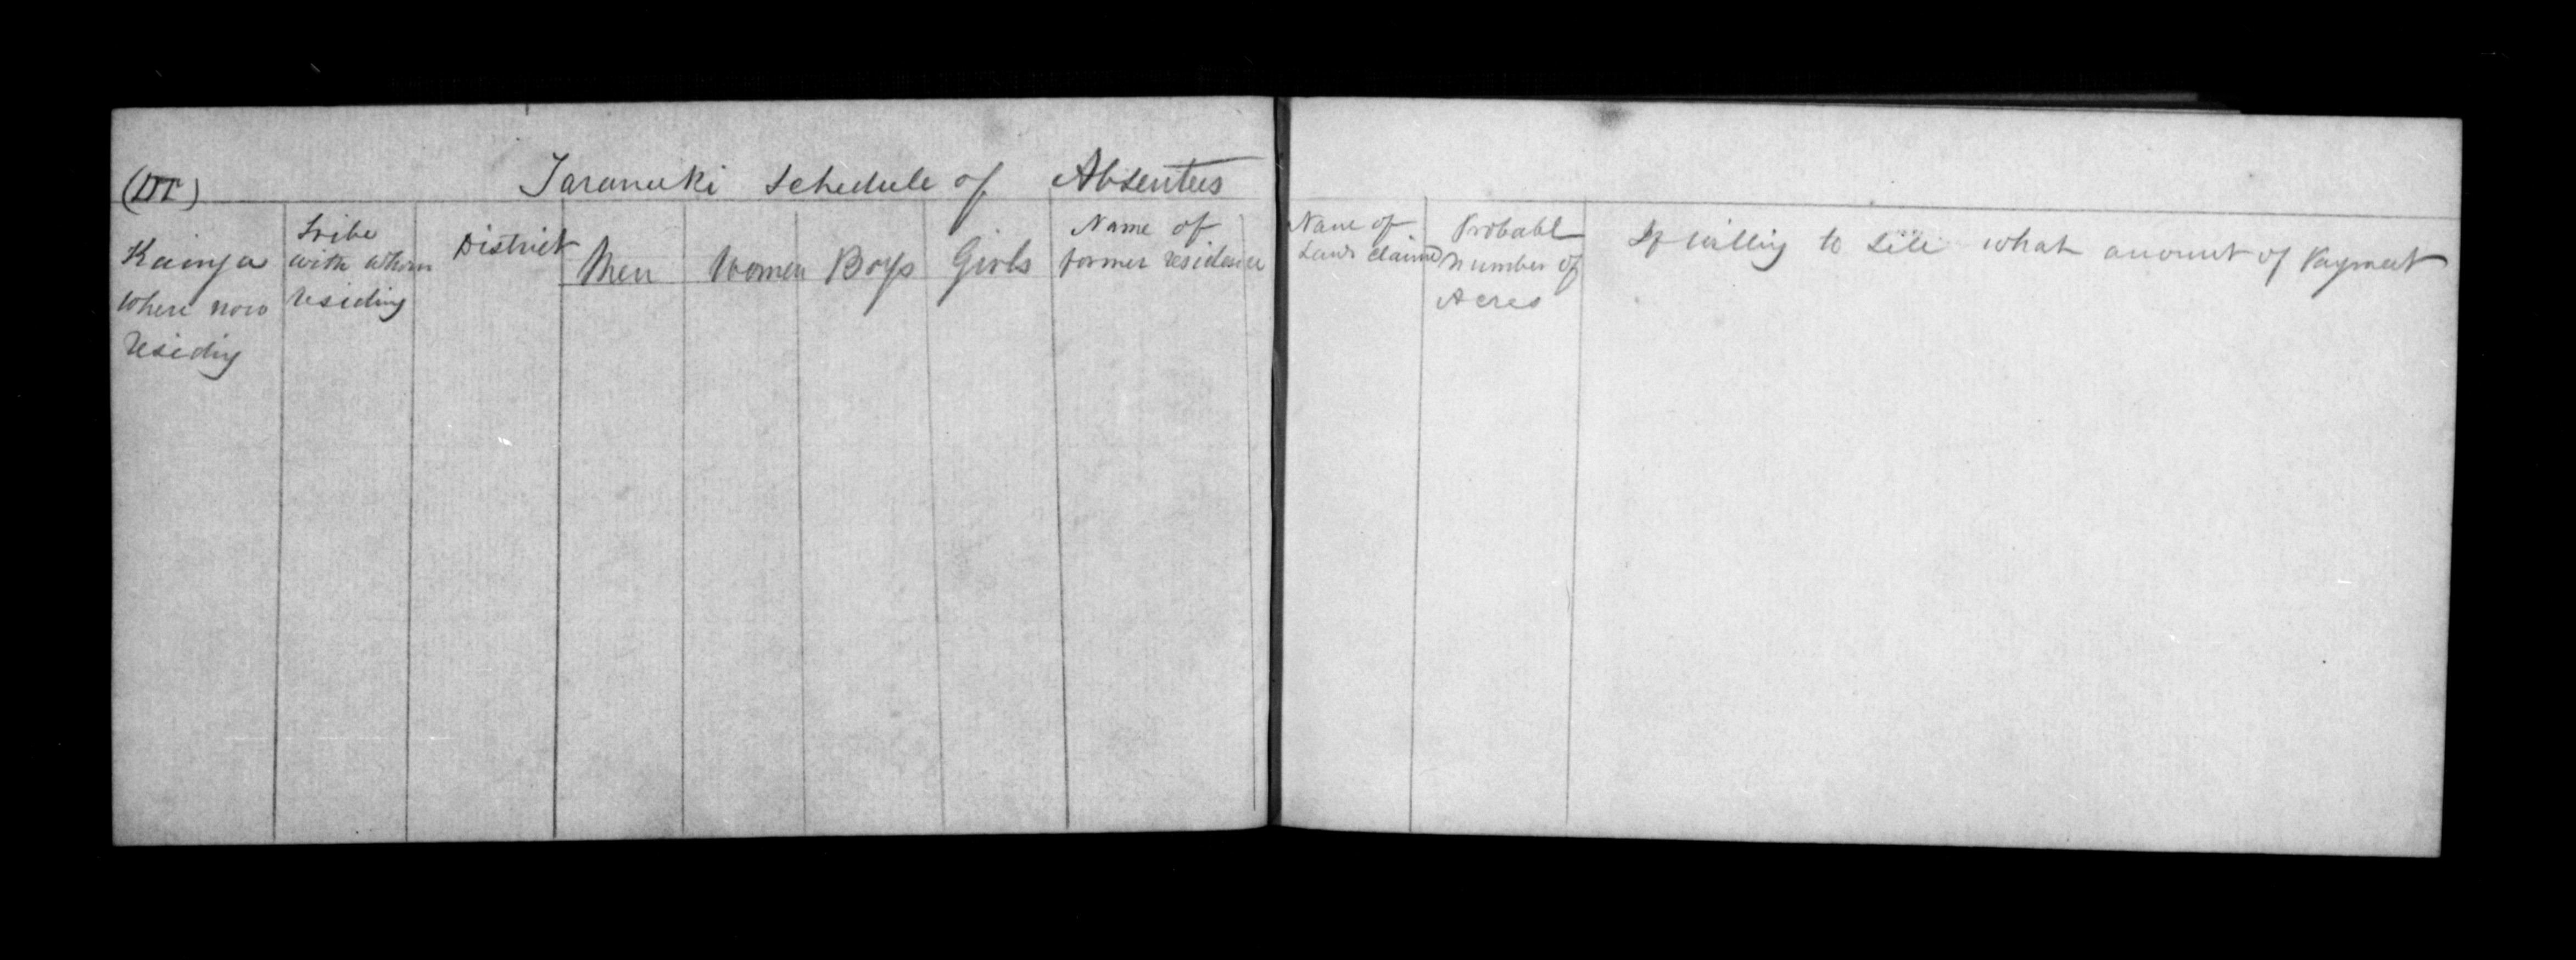 (III) Taranaki Schedule of Absentees
Kainga
where now
residing
Tribe
with whom
residing
District
Men
Women
Boys
Girls
Name of
former residence
Name of
Lands claimed
Probable
number of
Acres
If willing to sell what amount of Payment